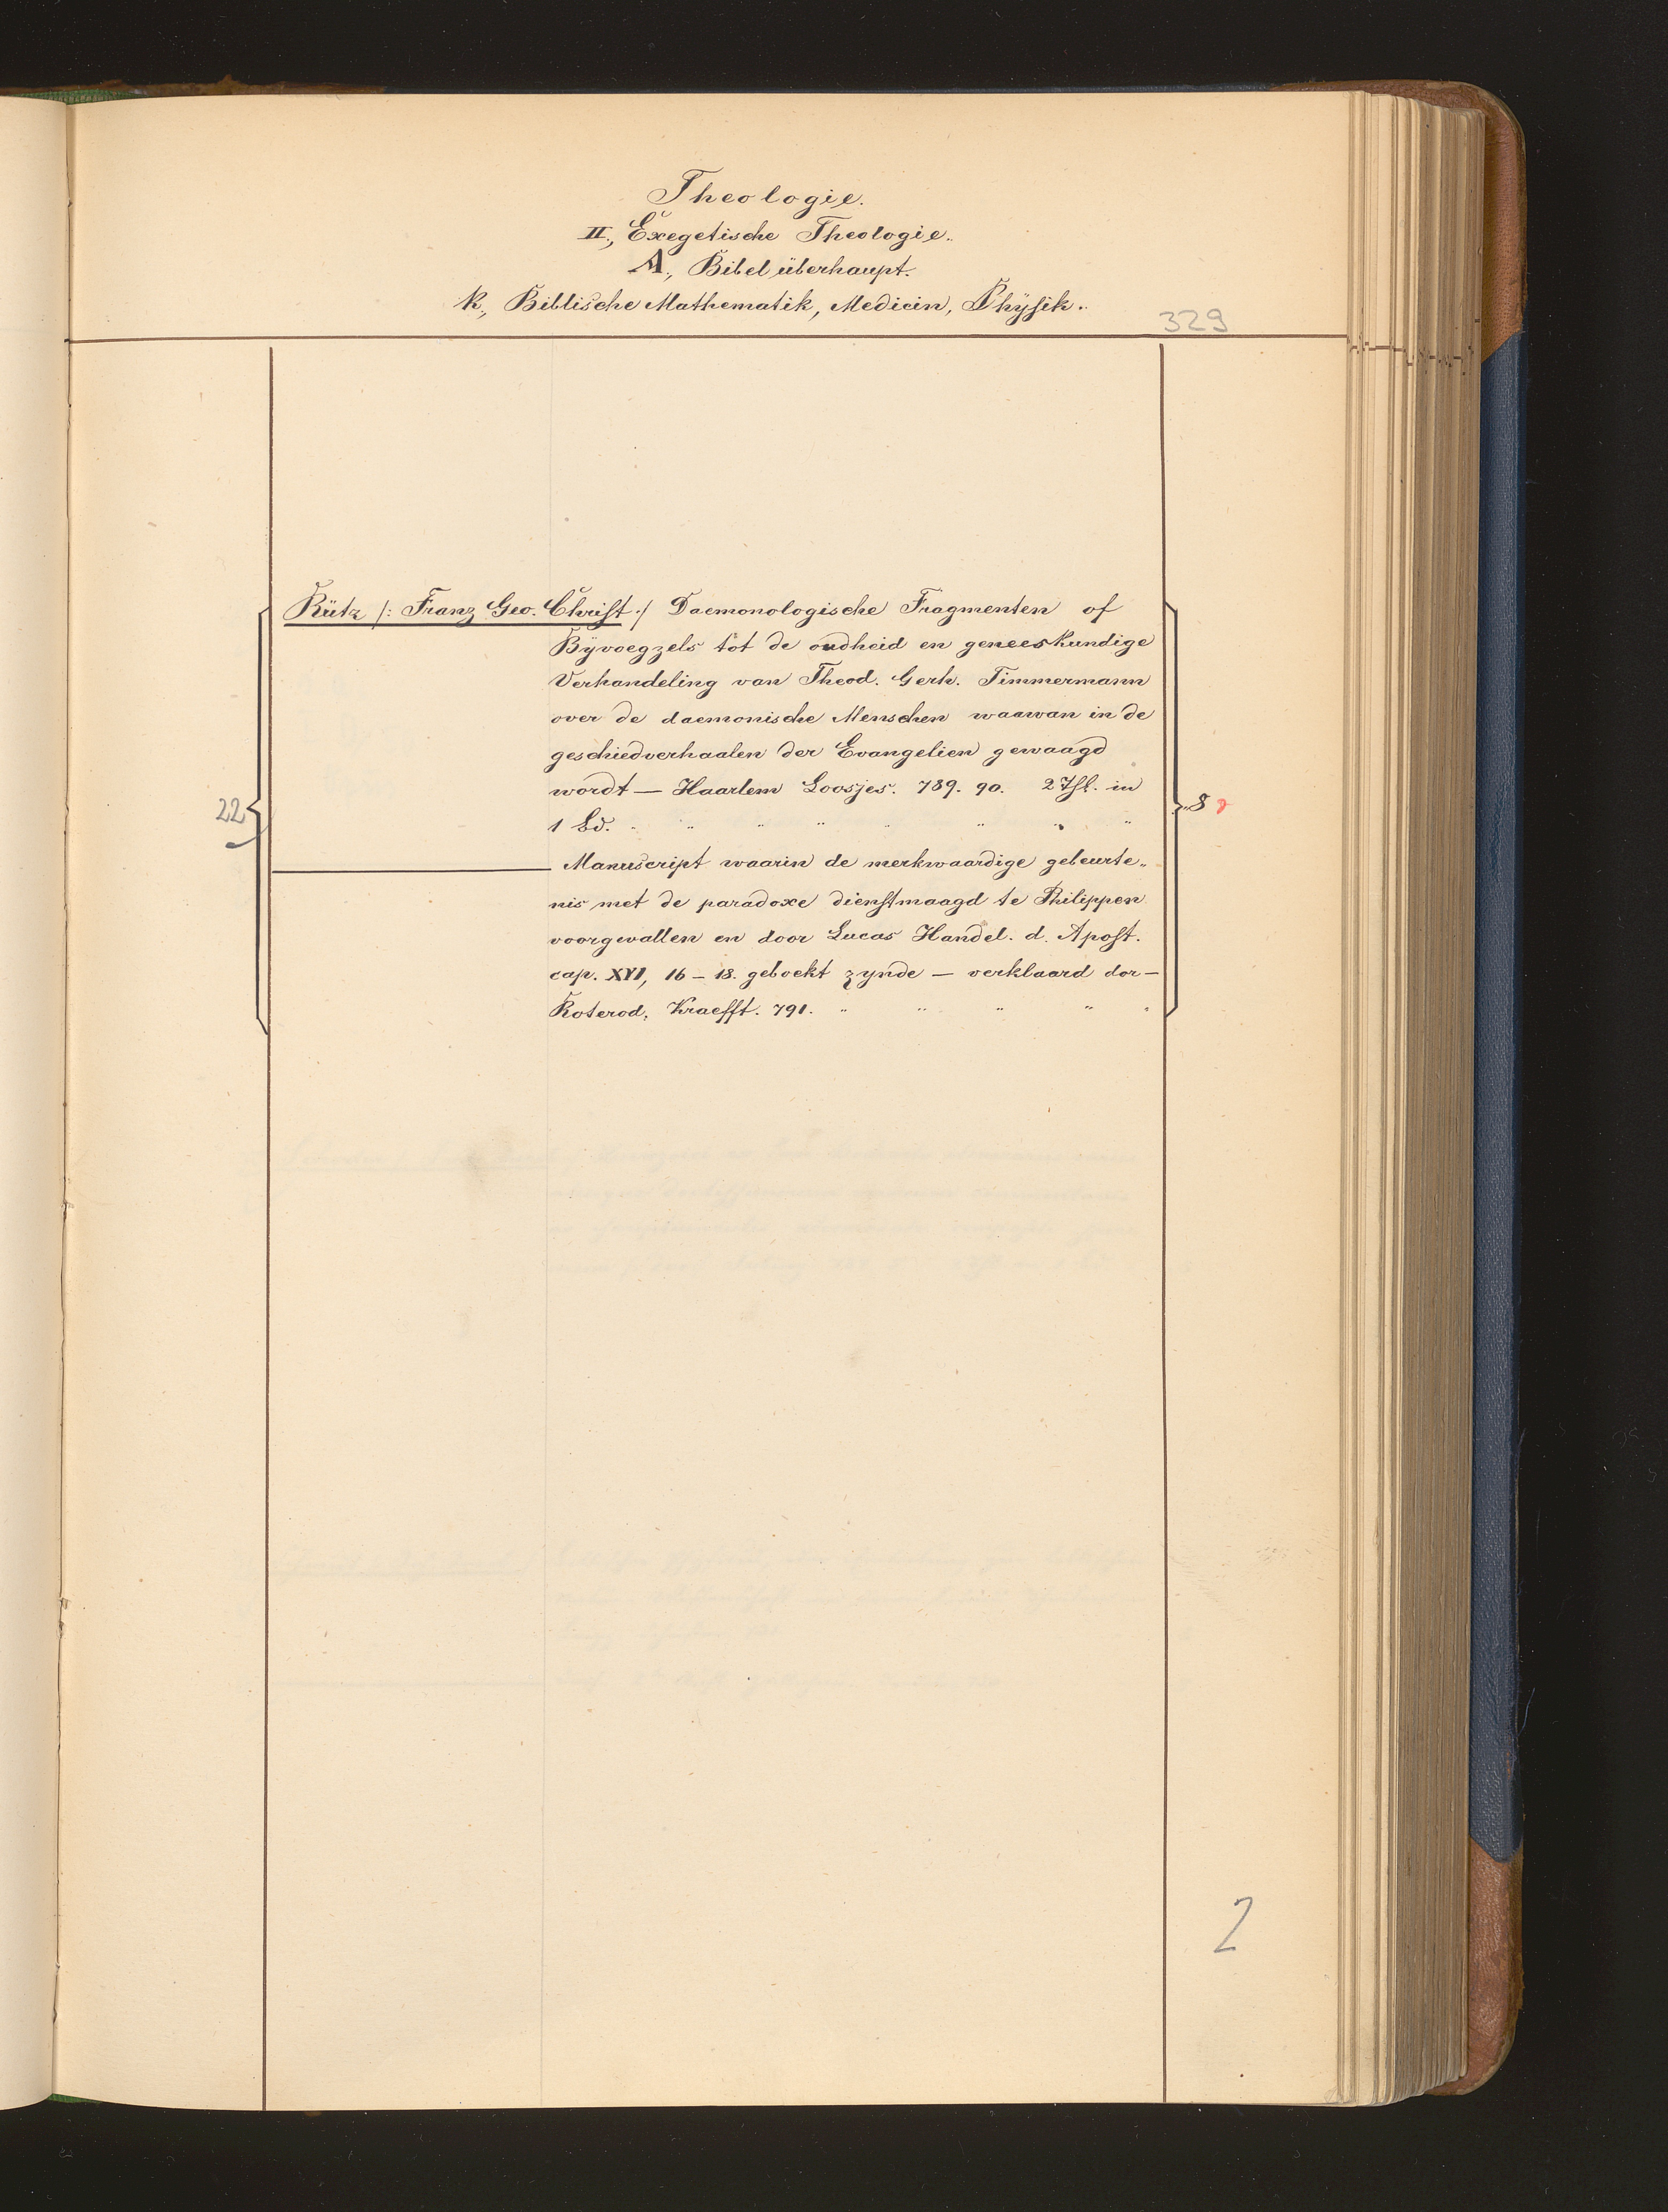 Theologie.
II., Exegetische Theologie.
A., Bibel überhaupt.
k., Biblische Mathematik, Medicin, Physik.
329
Rütz /: Franz Geo. Christ :/ Daemonologische Fragmenten of
Byvoegzels tot de oudheid en geneeskundige
Verhandeling van Theod. Gerh. Timmermann
over de daemonische Menschen waarvan in de
geschiedverhaalen der Evangelien gewaagd
wordt — Haarlem Loosjes. 789. 90. 2 Thl. in
1 Bd.
22
8
Manuscript waarin de merkwaardige gebeurte„
nis met de paradoxe dienstmaagd te Philippen
voorgevallen en door Lucas Handel. d. Apost.
cap. XVI, 16 – 18. geboekt zynde — verklaard dor —
Roterod, Kraefft. 791.
2